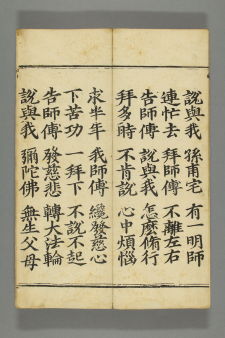 說與我　孫甫宅　有一明師
連忙去　拜師傅　不離左右
告師傅　說與我　怎麼脩行
拜多時　不肯說　心中煩惱
求半年　我師傅　纔發慈心
下苦功　一拜下　不說不起
告師傅　發慈悲　轉大法輪
說與我　彌陀佛　無生父母